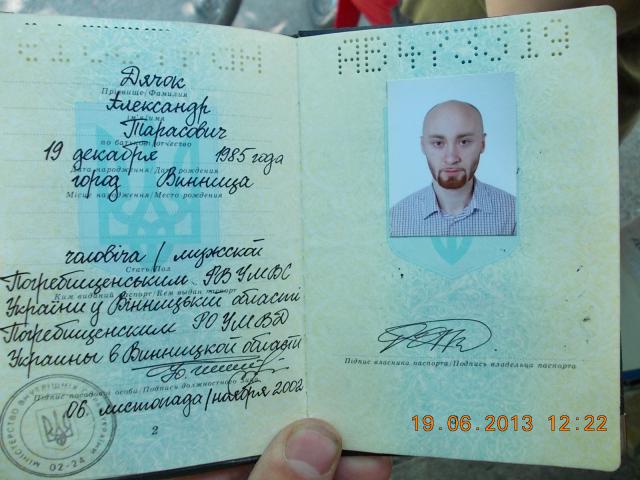 Дячок
Прізвище/Фамилия
Александр
Ім'я/Имя
Тарасович
по батькові/отчество
19 декабря 1985 года
Дата народження/Дата рождения
город Винница
Місце народження/Место рождения
чоловіча/мужской
Стать/Пол
Погребищенським РВ УМВС
Ким виданий паспорт/Кем выдан паспорт
України у Вінницькій області
Погребищенским РО УМВД
Украины в Винницкой области
Підпис посадової особи/Подпись должностного лица
06 листопада/ноября 2002
МІНІСТЕРСТВО ВНУТРІШНІХ УКРАЇНИ
02-24
2
АВ 473319
Підпис власника паспорта/Подпись владельца паспорта
19.06.2013 12:22